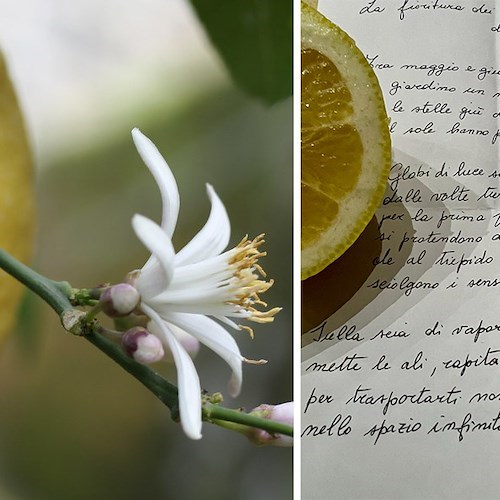 La fioritura dei
d
Tra maggio e giu
giardino un m
le stelle giù d
l sole hanno p
Globi di luce s
dalle volte tu
per la prima
si protendono a
ole al tiepido
sciolgono i sens
Sulla scia di vapor
mette le ali, rapita
per trasportarti no
nello spazio infinit